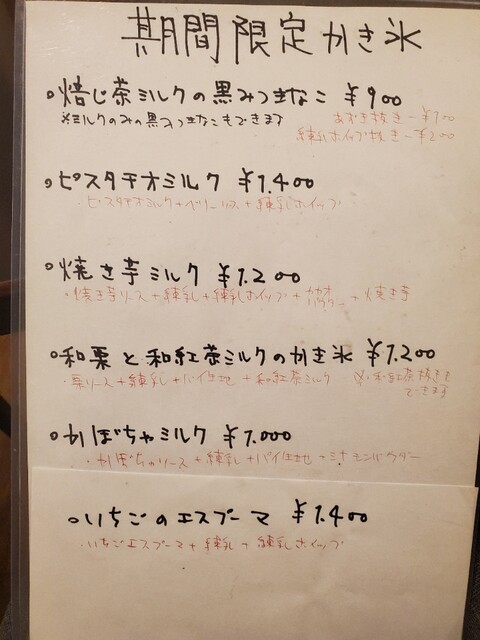 期間限定かき氷
焙じ茶ミルクの黒みつきなこ ¥900
※ミルクのみの黒みつきなこもできます
あずき抜き-¥100
練乳ホイップ抜き-¥200
ピスタチオミルク ¥1.400
・ピスタチオミルク+ベリーソース+練乳ホイップ
焼き芋ミルク ¥1.200
・焼き芋ソース+練乳+練乳ホイップ+カカオパウダー+焼き芋
和栗と和紅茶ミルクのかき氷 ¥1.200
・栗ソース+練乳+パイ生地+和紅茶ミルク ※和紅茶抜きも
できます
かぼちゃミルク ¥1.000
・かぼちゃソース+練乳+パイ生地+シナモンパウダー
いちごのエスプーマ ¥1.400
・いちごエスプーマ+練乳+練乳ホイップ